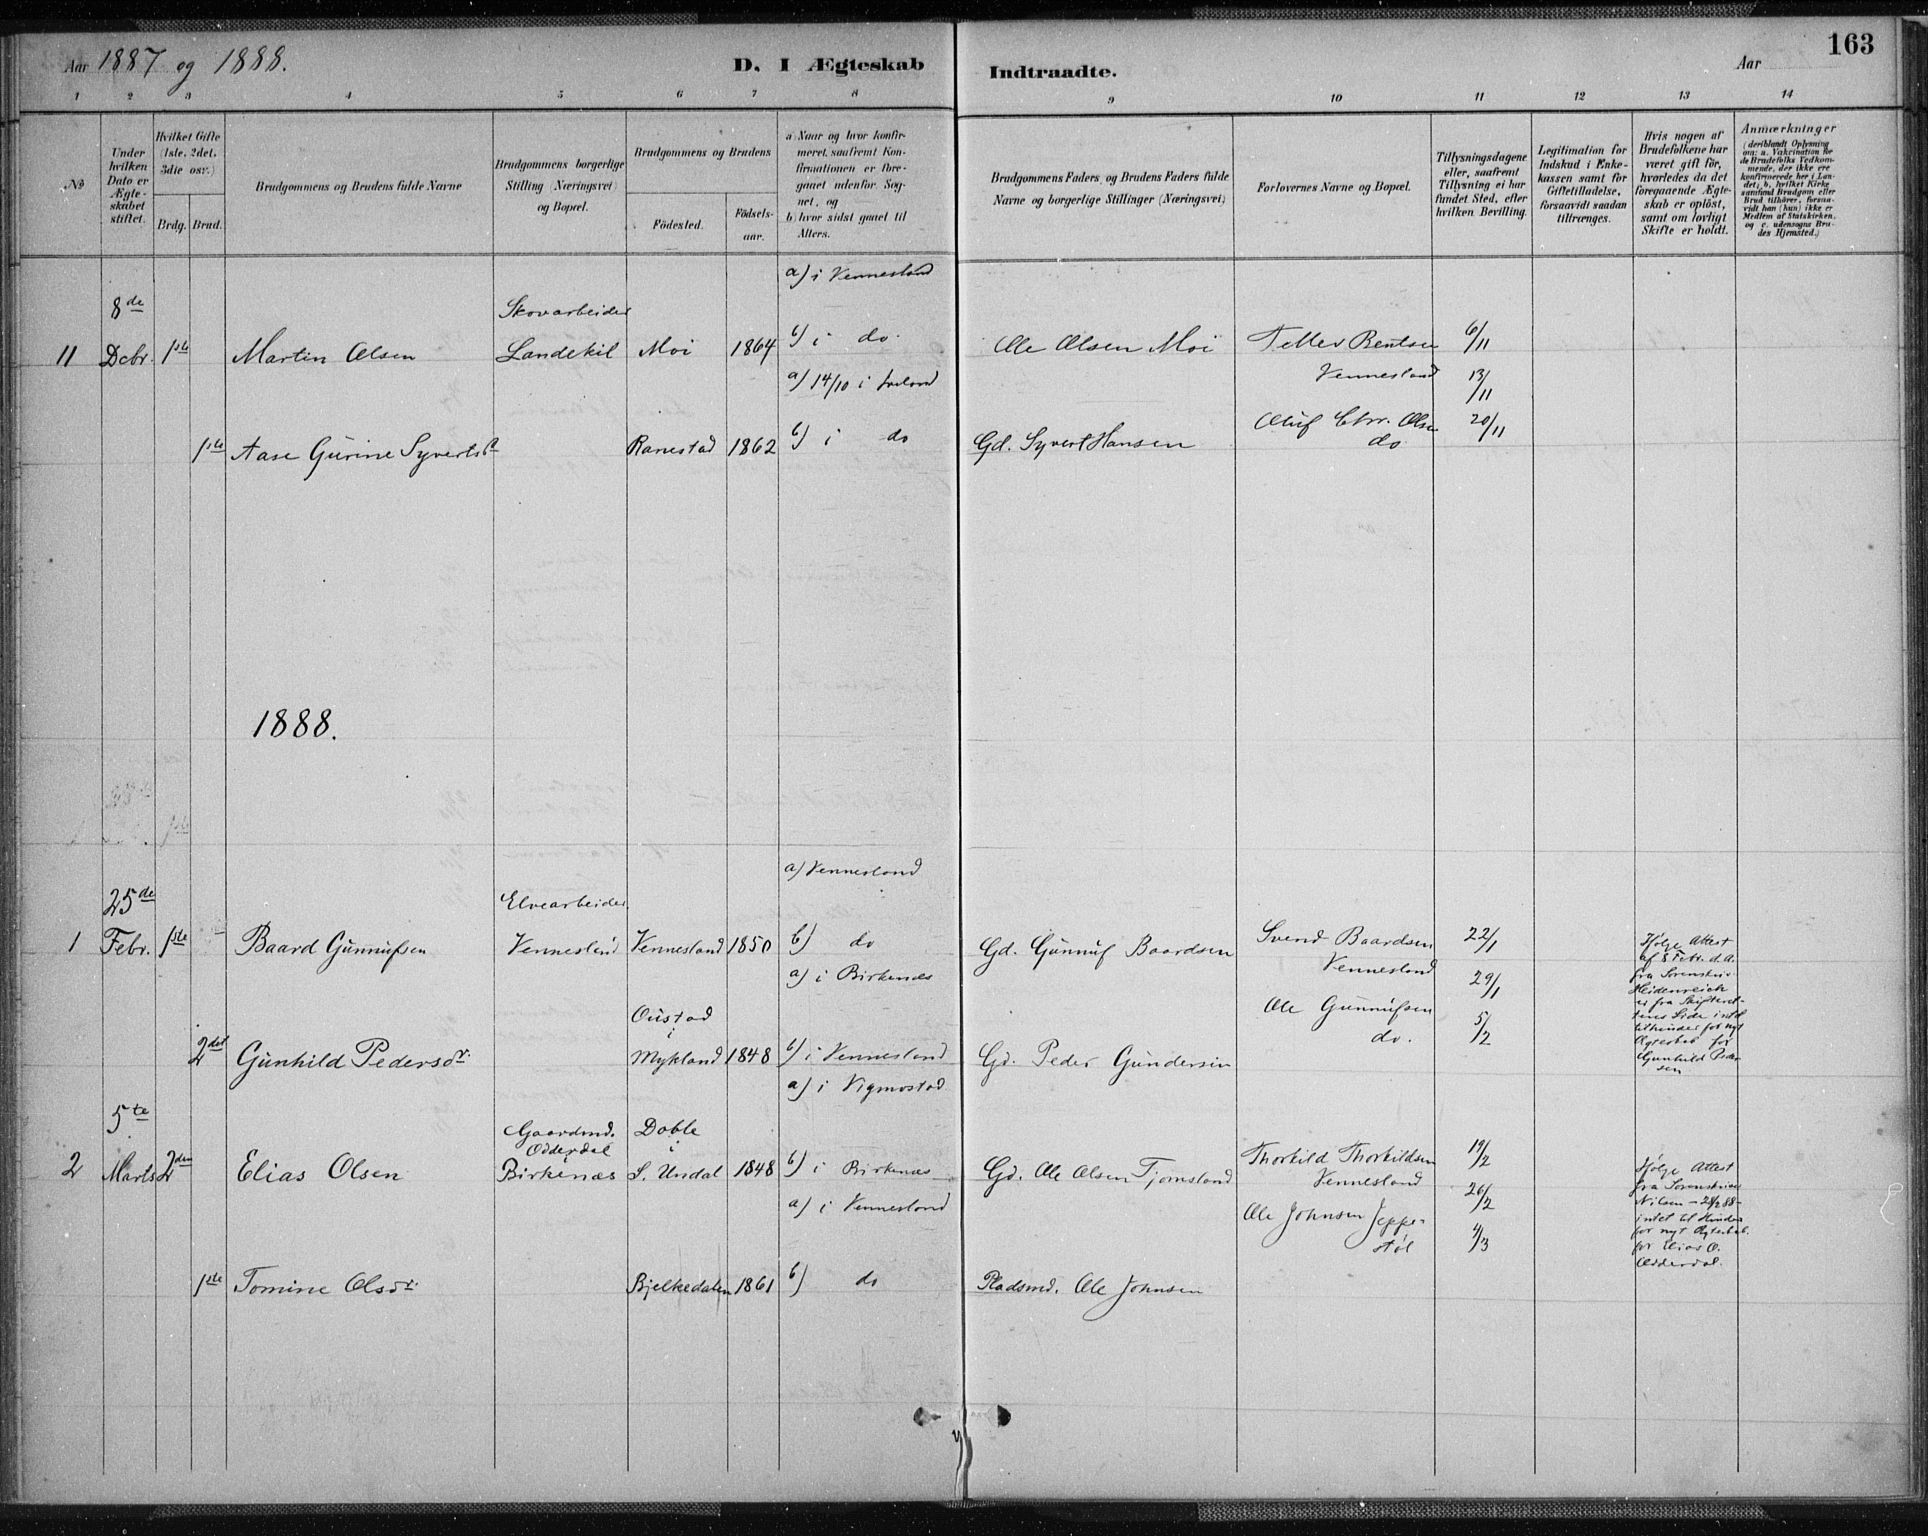 Aar 1887 og 1888.
D. I Ægteskab Indtraadte.
Aar
163
1 2 3 4 5 6 7 8 9 10 11 12 13 14
No
Under hvilken Dato er Ægteskabet stiftet.
Hvilket Gifte (1ste, 2det, 3die osv.)
Brdg. Brud.
Brudgommens og Brudens fulde Navne
Brudgommens borgerlige Stilling (Næringsvei) og Bopæl.
Brudgommens og Brudens
Födested.
Födselsaar.
a) Naar og hvor konfirmeret, saafremt Konfirmationen er foregaaet udenfor Sognet, og
b) hvor sidst gaaet til Alters.
Brudgommens Faders, og Brudens Faders fulde Navne og borgerlige Stillinger (Næringsvei)
Forlovernes Navne og Bopæl.
Tillysningsdagene eller, saafremt Tillysning ei har fundet Sted, efter hvilken Bevilling.
Legitimation for Indskud i Enkekassen samt for Giftetilladelse, forsaavidt saadan tiltrænges.
Hvis nogen af Brudefolkene har været gift för, hvorledes da det foregaaende Ægteskab er oplöst, samt om lovligt Skifte er holdt.
Anmærkninger (deriblandt Oplysning om: a. Vakcination for de Brudefolks Vedkommende, der ikke ere konfirmerede her i Landet; b. hvilket Kirkesamfund Brudgom eller Brud tilhörer, forsaavidt han (hun) ikke er Medlem af Statskirken, og c. udensogns Brudes Hjemsted.)
a) i Vennesland
8de Skovarbeider
11 Dcbr. 1ste Martin Olsen Landekil Moi 1864 b) i do. Ole Olsen Moi Tellev Bentsen 6/11
a) 14/10 i Iveland Vennesland 13/11
Oluf Chr. Olsen 20/11
1ste Aase Gurine Syvertsd Ranestad 1862 b) i do Gd. Syvert Hansen do
1888.
a) Vennesland
25de Elvearbeider
1 Febr. 1ste Baard Gunnufsen Vennesland Vennesland 1850 b) do Gd. Gunnuf Baardsen Svend Baardsen 22/1
a) i Birkenæs Vennesland 29/1
Oustad Ole Gunnufsen 5/2
i
2det Gunhild Pedersdr. Mykland 1848 b) i Vennesland Gd. Peder Gundersen do.
Ifølge Attest
af 8 Febr. d.A.
fra Sorenskriv.
Heidenreich
er fra Skifteret-
tens Side intet
tilhinder for nyt
Ægteskab for
Gunhild Peder-
sen
a) i Vigmostad
5te
Gaardmd. Doble
Odderdal i
2 Marts 2den Elias Olsen Birkenæs S. Undal 1848 b) i Birkenæs Gd. Ole Olsen Tjomsland Thorkild Thorkildsen 19/2
a) i Vennesland Vennesland 26/2
Ole Johnsen Jeppe-
støl 4/3
1ste Tomine Olsdr. Bjelkedalen 1861 b) do Pladsmd. Ole Johnsen
Ifølge Attest
fra Sorenskriver
Nilsen - 28/2 88 -
intet til Hinder
for nyt Ægteskab
for Elias O.
Odderdal.